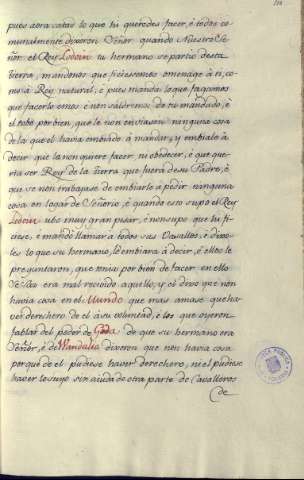 pues aora catad lo que tu queredes facer, é todos co-
munalmente dixeron Señor quando Nuestro Se-
ñor el Rey Lodoin tu hermano se partio desta
tierra, mandonos que ficiessemos omenage á ti, co-
mo á Rey natural, é pues manda lo que fagamos
que facerlo emos é non saldremos de tu mandado, é
el tobo por bien, que le non enviasen ninguna cosa
de la que el havia embiado á mandar, y embiale á
decir que la non quiere facer ni obedecer, é que que-
ria ser Rey de la tierra que fuera de su Padre, é
que se non trabajase de embiarle a pedir ninguna
cosa en logar de Señorio, é quando esto supo el Rey
Lodoin ubo muy gran pesar, é non supo que fi-
ciese, é mandó llamar á todos sus Vasallos, é dixo-
les lo que su hermano le embiara á decir, é ellos le
preguntaron, que tenia por bien de facer en ello
é el era mal recivido aquello, y el dixo que non
havia cosa en el Mundo que mas amase que ha-
ver derechero de el á su voluntad, é los que oyeron
fablar del poder de de que su hermano era
Señor, é de Vandalia dixeron que non havia cosa
porque de el pudiese haver derechero, ni el pudiese
haver lo suyo sin ayuda de otra parte de Cavalleros
de